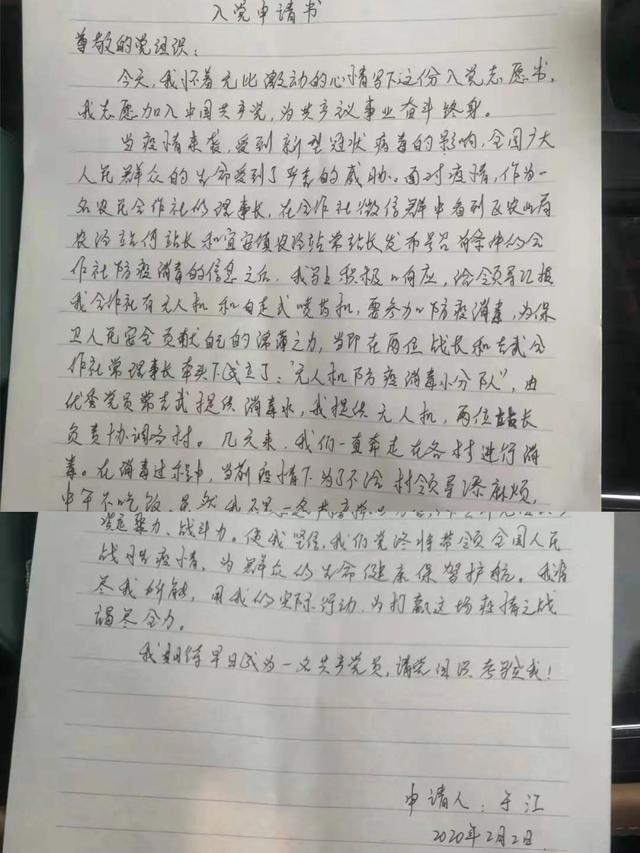 入党申请书
尊敬的党组织:
今天,我怀着无比激动的心情写下这份入党志愿书,
我志愿加入中国共产党,为共产议事业奋斗终身。
当疫情来袭,受到新型冠状病毒的影响,全国广大
人民群众的生命受到了严重的威胁。面对疫情,作为一
名农民合作社的理事长,在合作社微信群中看到区农业局
农经站何站长和宜安镇农经站常站长发布号召有条件的合
作社防疫消毒的信息之后,我马上积极响应,给领导汇报
我合作社有无人机和自走式喷药机,要参加防疫消毒,为保
卫人民安全贡献自己的绵薄之力,当即在两位战长和志武合
作社常理事长牵头下成立了:“无人机防疫消毒小分队”,由
优秀党员常志武提供消毒水,我提供无人机,两位站长
负责协调各村。几天来,我们一直奔走在各村进行消
毒。在消毒过程中,当前疫情下为了不给村领导添麻烦,
中午不吃饭,虽然我不是一名共产
聚力、战斗力。使我坚信,我们党终将带领全国人民
战胜疫情,为群众的生命健康保驾护航。我将
尽我所能,用我的实际行动,为打赢这场疫情之战
竭尽全力。
我期待早日成为一名共产党员,请党组织考验我!
申请人:于江
2020年2月2日